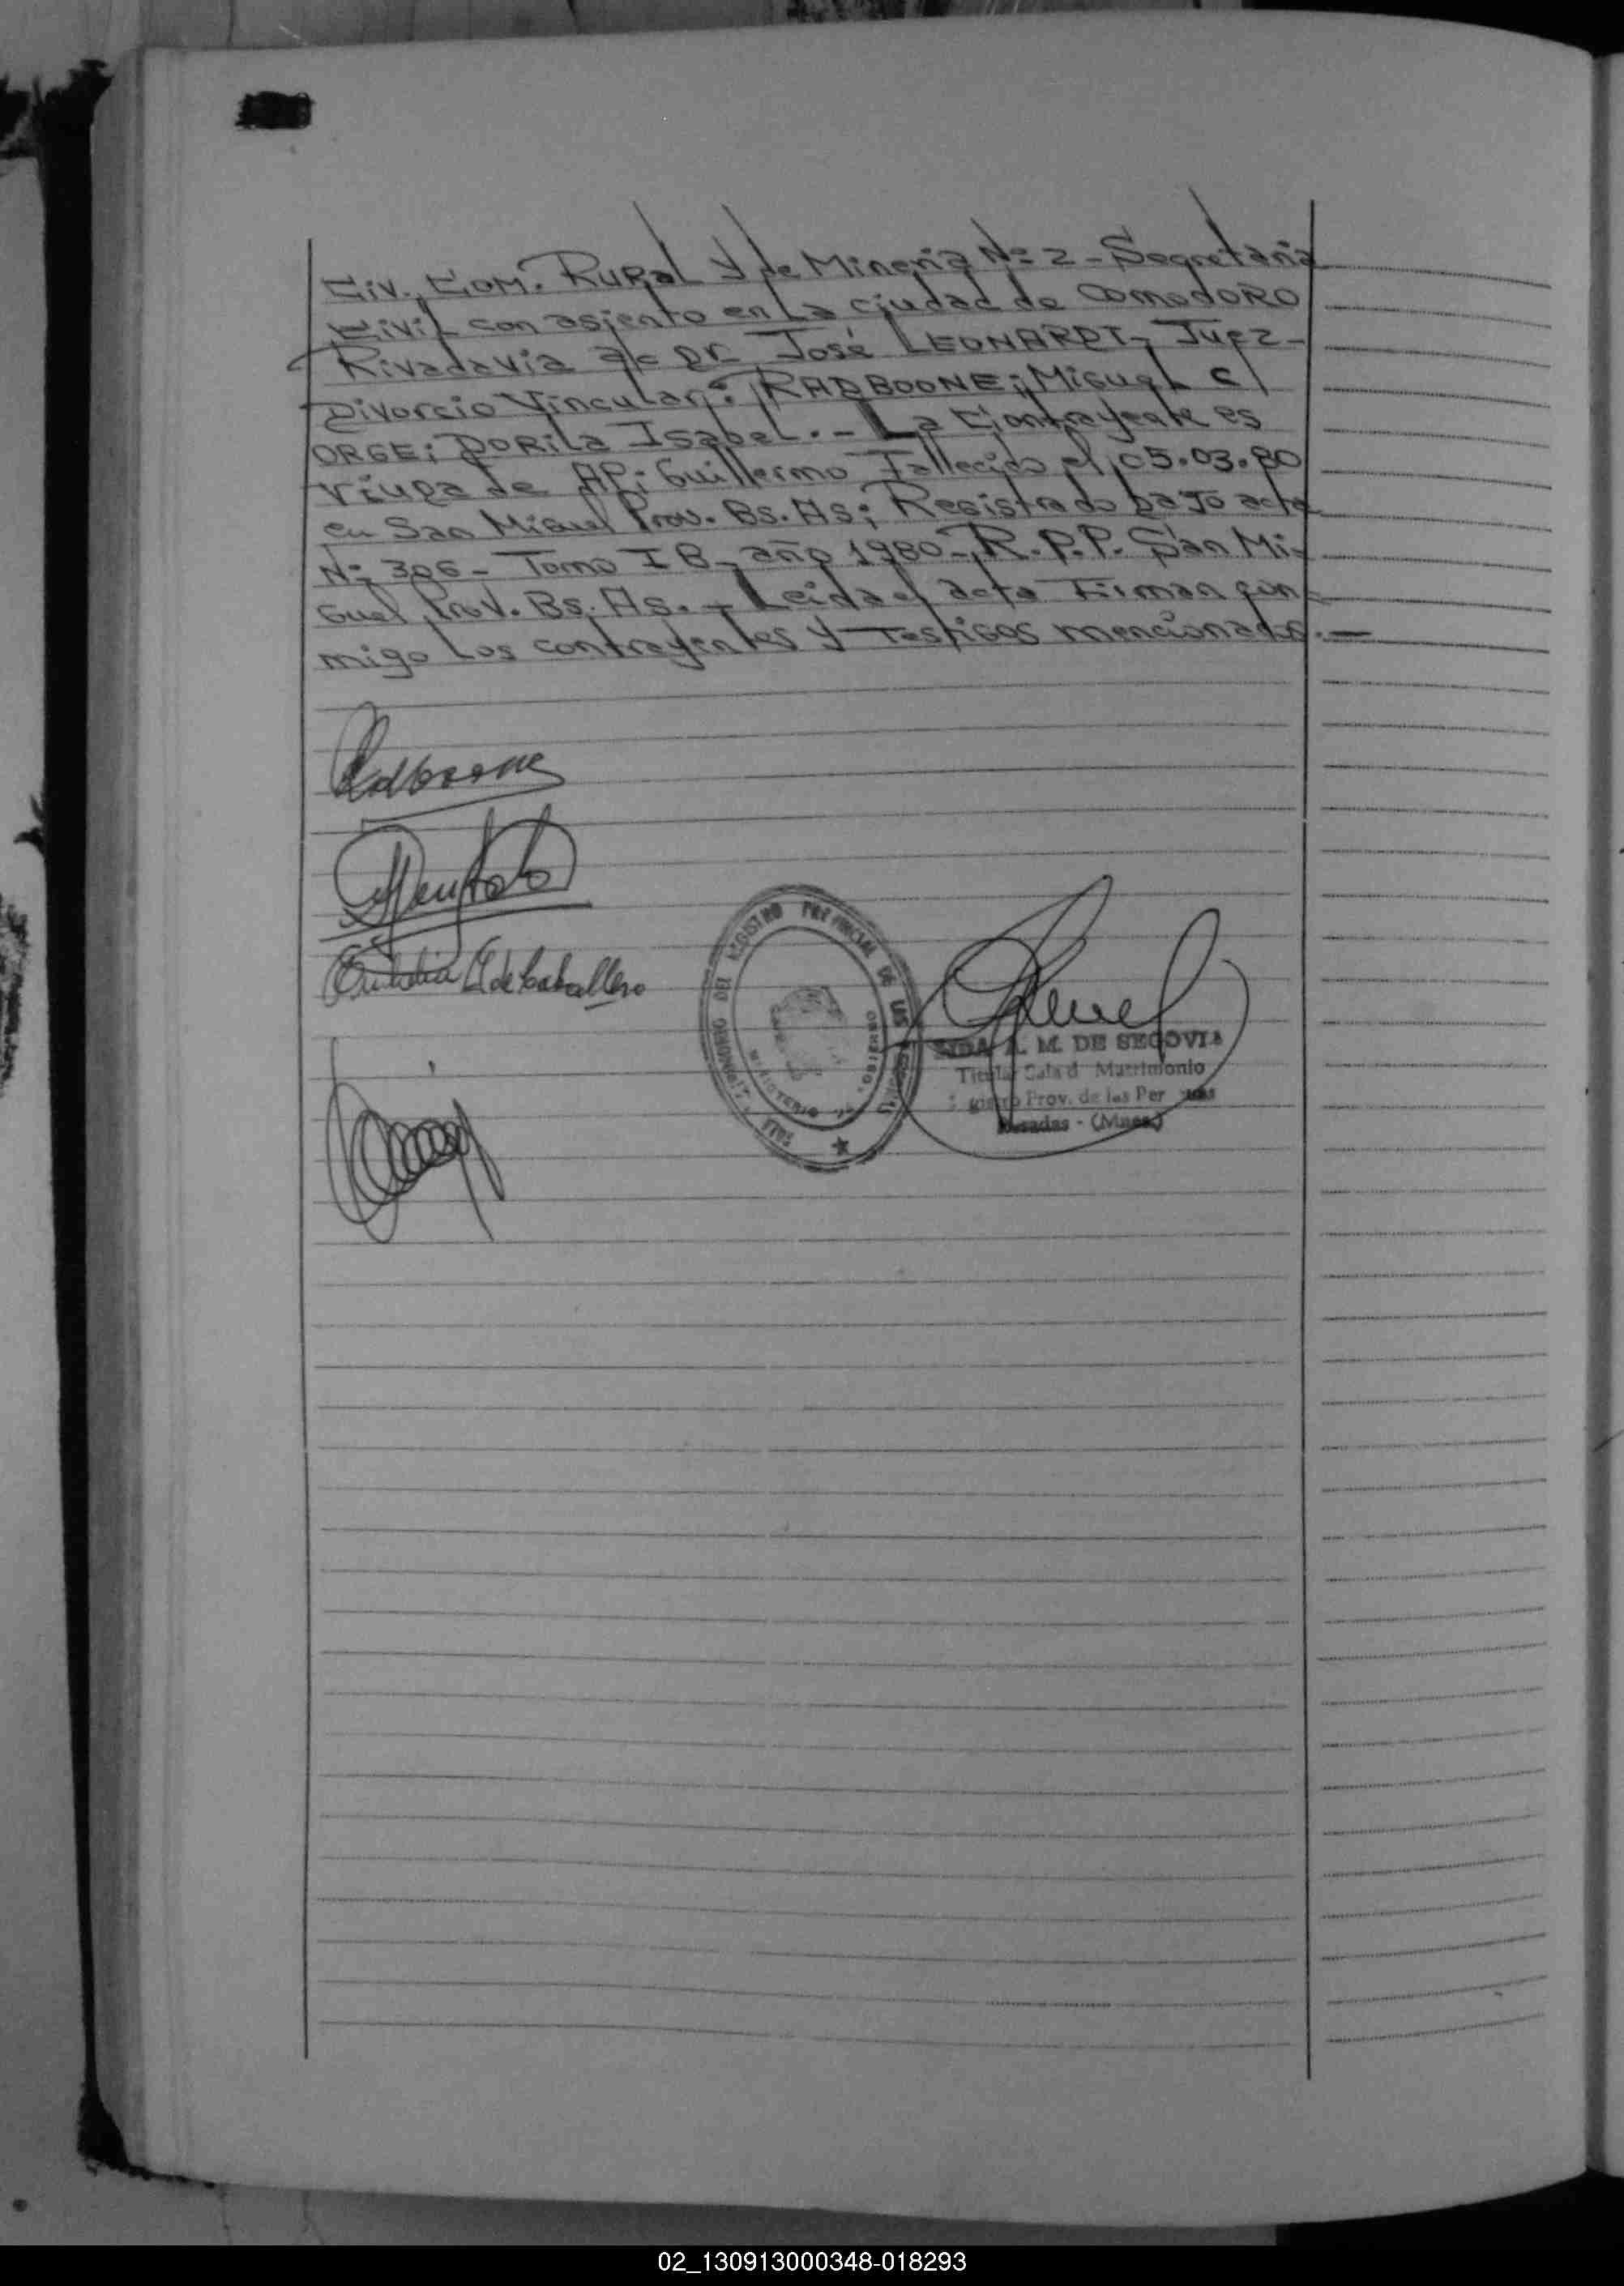 Civ. Com. Rural y de Minería Nº 2 - Secretaría
Civil con asiento en La ciudad de Comodoro
Rivadavia a/c Dr. José LEONARDT - Juez -
Divorcio Vincular: RADBOONE; Miguel C/
ORGE; DORILA Isabel. - La Contrayente es
viuda de AP; Guillermo Fallecido el 05.03.80
en San Miguel Prov. Bs. As; Registrado bajo acta
Nº 306 - Tomo I B - año 1980 - R.P.P. San Mi-
guel Prov. Bs. As. - Leida el acta Firman con-
migo Los contrayentes y Testigos mencionados. -
Radboone
de Caballero
REGISTRO PROVINCIAL DE LAS
MINISTERIO DE GOBIERNO
A. M. DE SEGOVIA
Titular Sala d Matrimonio
gistro Prov. de las Per nas
Posadas - (Mnes.)
02_130913000348-018293